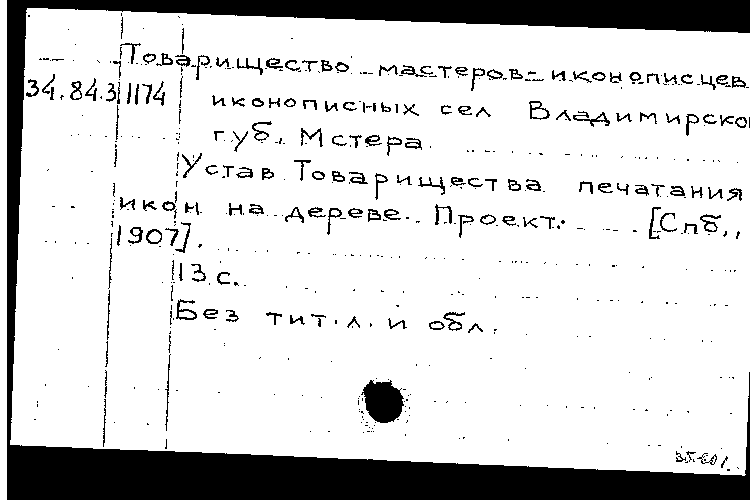 Товарищество мастеров-иконописцев
34.84.3.1174 иконописных сел Владимирско
губ., Мстера.
Устав Товарищества печатания
икон на дереве. Проект. [Спб.,
1907].
13 с.
Без тит. л. и обл.